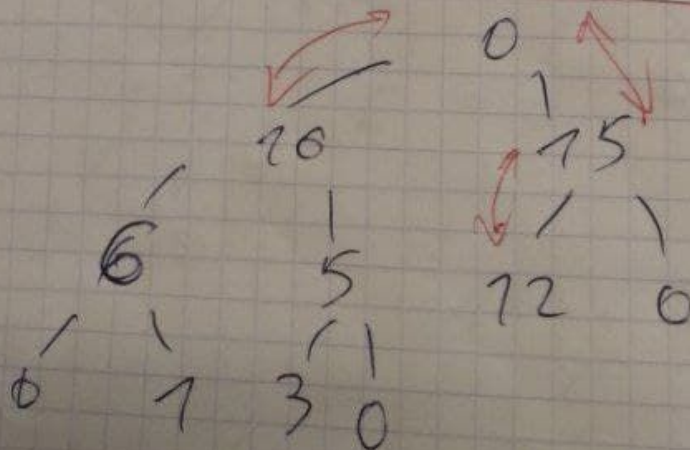 0
16 15
6 5 12 0
0 1 3 0